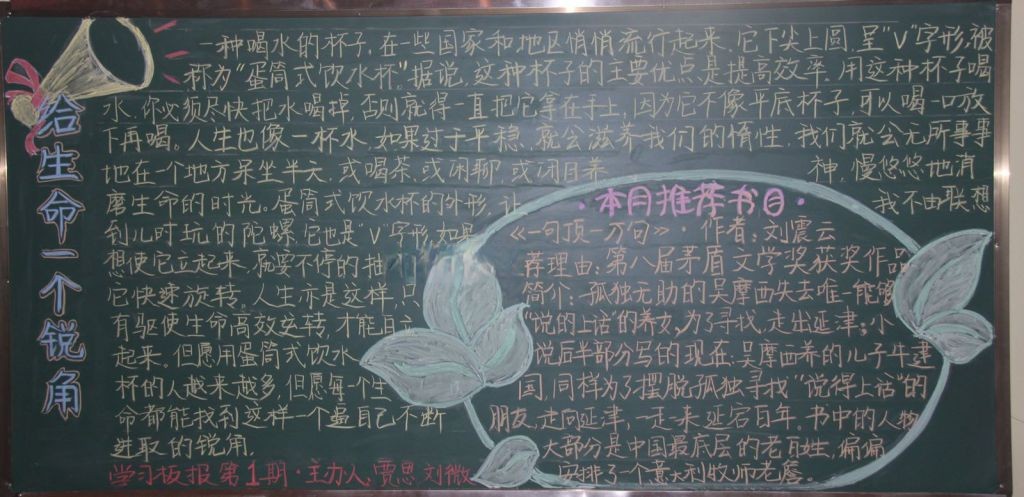 给生命一个锐角
一种喝水的杯子,在一些国家和地区悄悄流行起来,它下尖上圆,呈"V"字形,被
称为"蛋筒式饮水杯"。据说,这种杯子的主要优点是提高效率,用这种杯子喝
水,你必须尽快把水喝掉,否则就得一直把它拿在手上,因为它不像平底杯子,可以喝一口放
下再喝。人生也像一杯水,如果过于平稳,就会滋养我们的惰性,我们就会无所事事
地在一个地方呆坐半天,或喝茶,或闲聊,或闭目养神,慢悠悠地消
磨生命的时光。蛋筒式饮水杯的外形,让我不由联想
到儿时玩的陀螺,它也是"V"字形,如果
想使它立起来,就要不停的抽
它快速旋转。人生亦是这样,只
有驱使生命高效运转,才能
起来。但愿用蛋筒式饮水
杯的人越来越多,但愿每个生
命都能找到这样一个逼自己不断
进取的锐角.
学习板报第1期·主办人:贾思 刘微
·本月推荐书目·
《一句顶一万句》·作者:刘震云
荐理由:第八届茅盾文学奖获奖作品
简介:孤独无助的吴摩西失去唯一能够
"说的上话"的养女,为了寻找,走出延津;小
说后半部分写的现在:吴摩西养的儿子牛建
国,同样为了摆脱孤独寻找"说得上话"的
朋友,走向延津,一走一来延宕百年。书中的人物
大部分是中国最底层的老百姓,偏偏
安排了一个意大利牧师老詹。